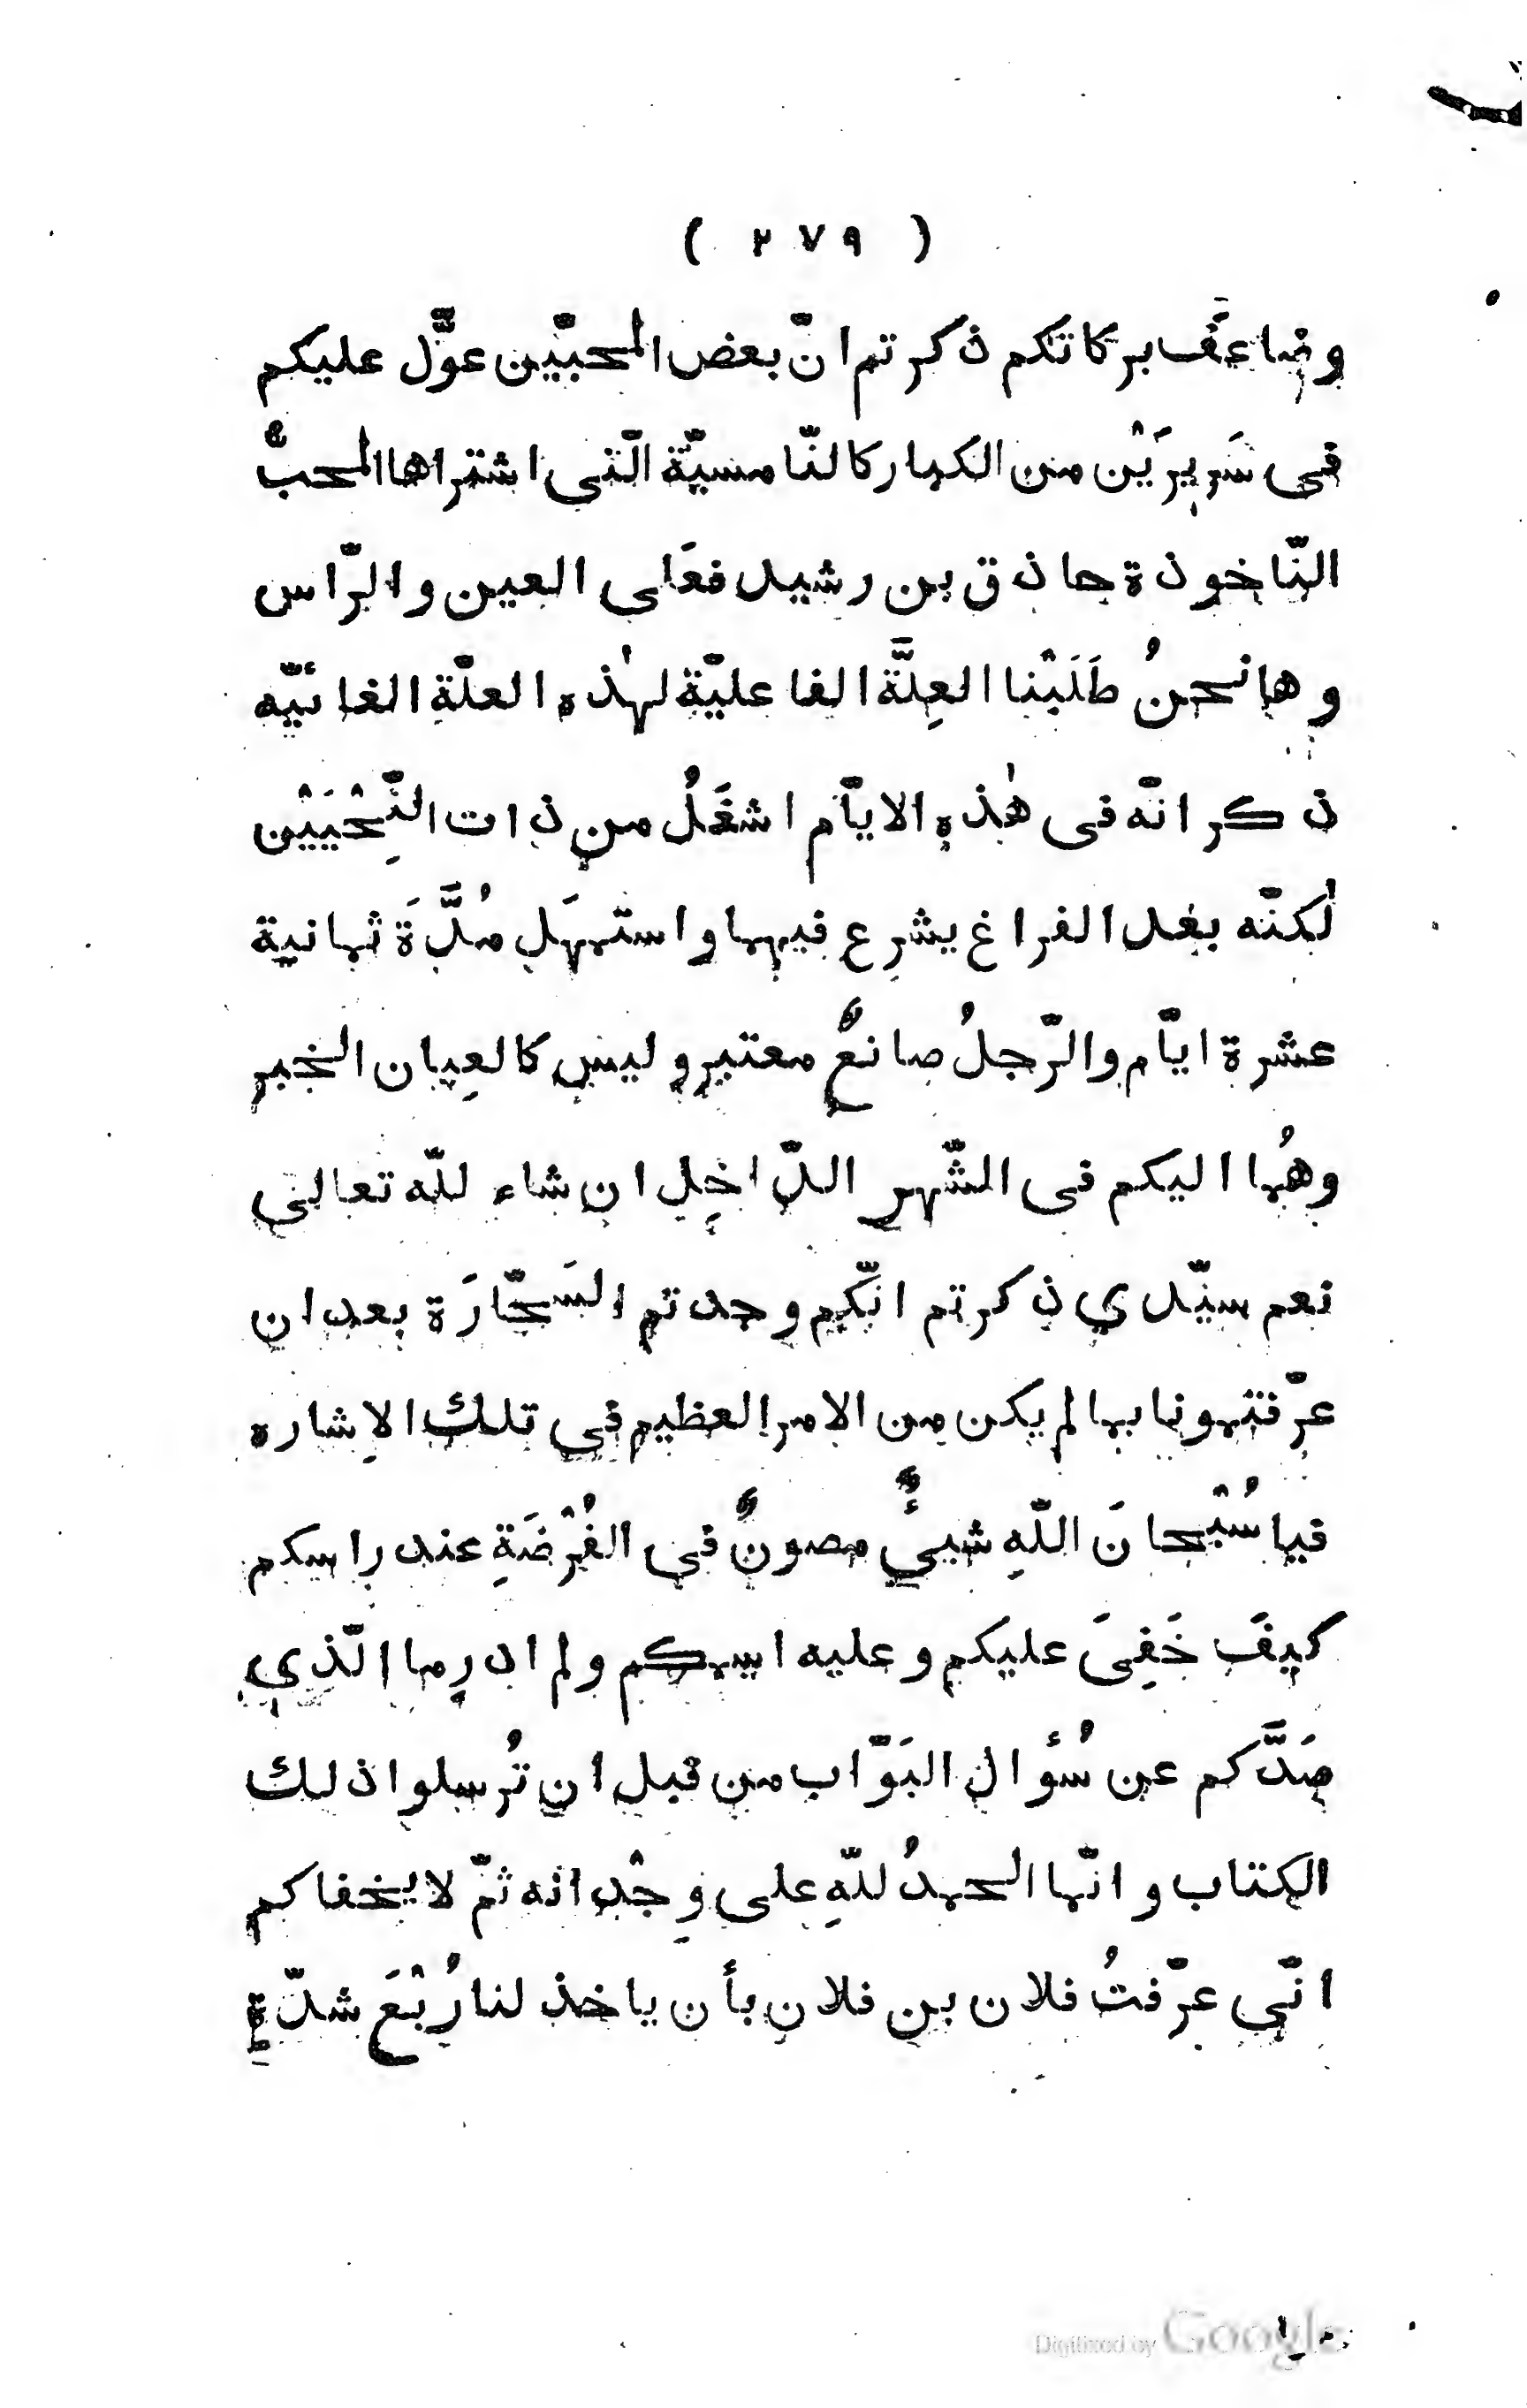 ( ٢٧٩ )
وضاعَفَ بركاتكم ذكرتم انّ بعض المحبّين عوَّل عليكم
في سَريرَيْن من الكبار كالنّامسيّة الّتي اشتراها المحبُّ
النّاخوذة حاذق بن رشيد فعَلى العين والرّاس
وها نحنُ طَلَبْنا العِلَّة الفاعليّة لهٰذه العلّةِ الغائيّه
ذكر انّه في هٰذه الايّام اشغَلُ من ذات النِّحْيَيْن
لٰكنّه بعد الفراغ يشرع فيهما واستمهَل مُدَّةَ ثمانية
عشرة ايّام والرّجلُ صانعٌ معتبر وليس كالعِيان الخبر
وهُما اليكم في الشّهرِ الدّاخِل ان شاء لله تعالى
نعم سيّدي ذكرتم انّكم وجدتم السَحّارَة بعد ان
عرّفتمونا بما لم يكن من الامر العظيم في تلك الاِشاره
فيا سُبْحانَ اللّهِ شيئٌ مصونٌ في الفُرْضَةِ عند راسكم
كيفَ خَفِىَ عليكم وعليه اسمكم ولم ادرِ ما الّذي
صَدَّكم عن سُؤال البَوّاب من قبل ان تُرسلوا ذلك
الكتاب وانّما الحمدُ للّهِ على وِجْدانه ثمّ لا يخفاكم
انّي عرّفتُ فلان بن فلان بأن ياخذ لنا رُبْعَ شدّةٍ
Digitized by Google